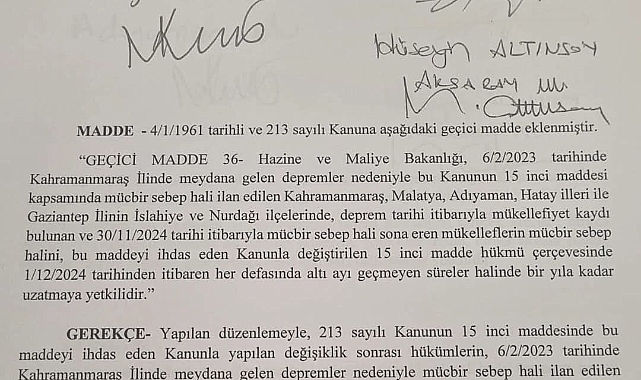 Hüseyin ALTINSOY
AKSARAY M.
MADDE - 4/1/1961 tarihli ve 213 sayılı Kanuna aşağıdaki geçici madde eklenmiştir.
"GEÇİCİ MADDE 36- Hazine ve Maliye Bakanlığı, 6/2/2023 tarihinde
Kahramanmaraş İlinde meydana gelen depremler nedeniyle bu Kanunun 15 inci maddesi
kapsamında mücbir sebep hali ilan edilen Kahramanmaraş, Malatya, Adıyaman, Hatay illeri ile
Gaziantep İlinin İslahiye ve Nurdağı ilçelerinde, deprem tarihi itibarıyla mükellefiyet kaydı
bulunan ve 30/11/2024 tarihi itibarıyla mücbir sebep hali sona eren mükelleflerin mücbir sebep
halini, bu maddeyi ihdas eden Kanunla değiştirilen 15 inci madde hükmü çerçevesinde
1/12/2024 tarihinden itibaren her defasında altı ayı geçmeyen süreler halinde bir yıla kadar
uzatmaya yetkilidir."
GEREKÇE- Yapılan düzenlemeyle, 213 sayılı Kanunun 15 inci maddesinde bu
maddeyi ihdas eden Kanunla yapılan değişiklik sonrası hükümlerin, 6/2/2023 tarihinde
Kahramanmaraş İlinde meydana gelen depremler nedeniyle mücbir sebep hali ilan edilen